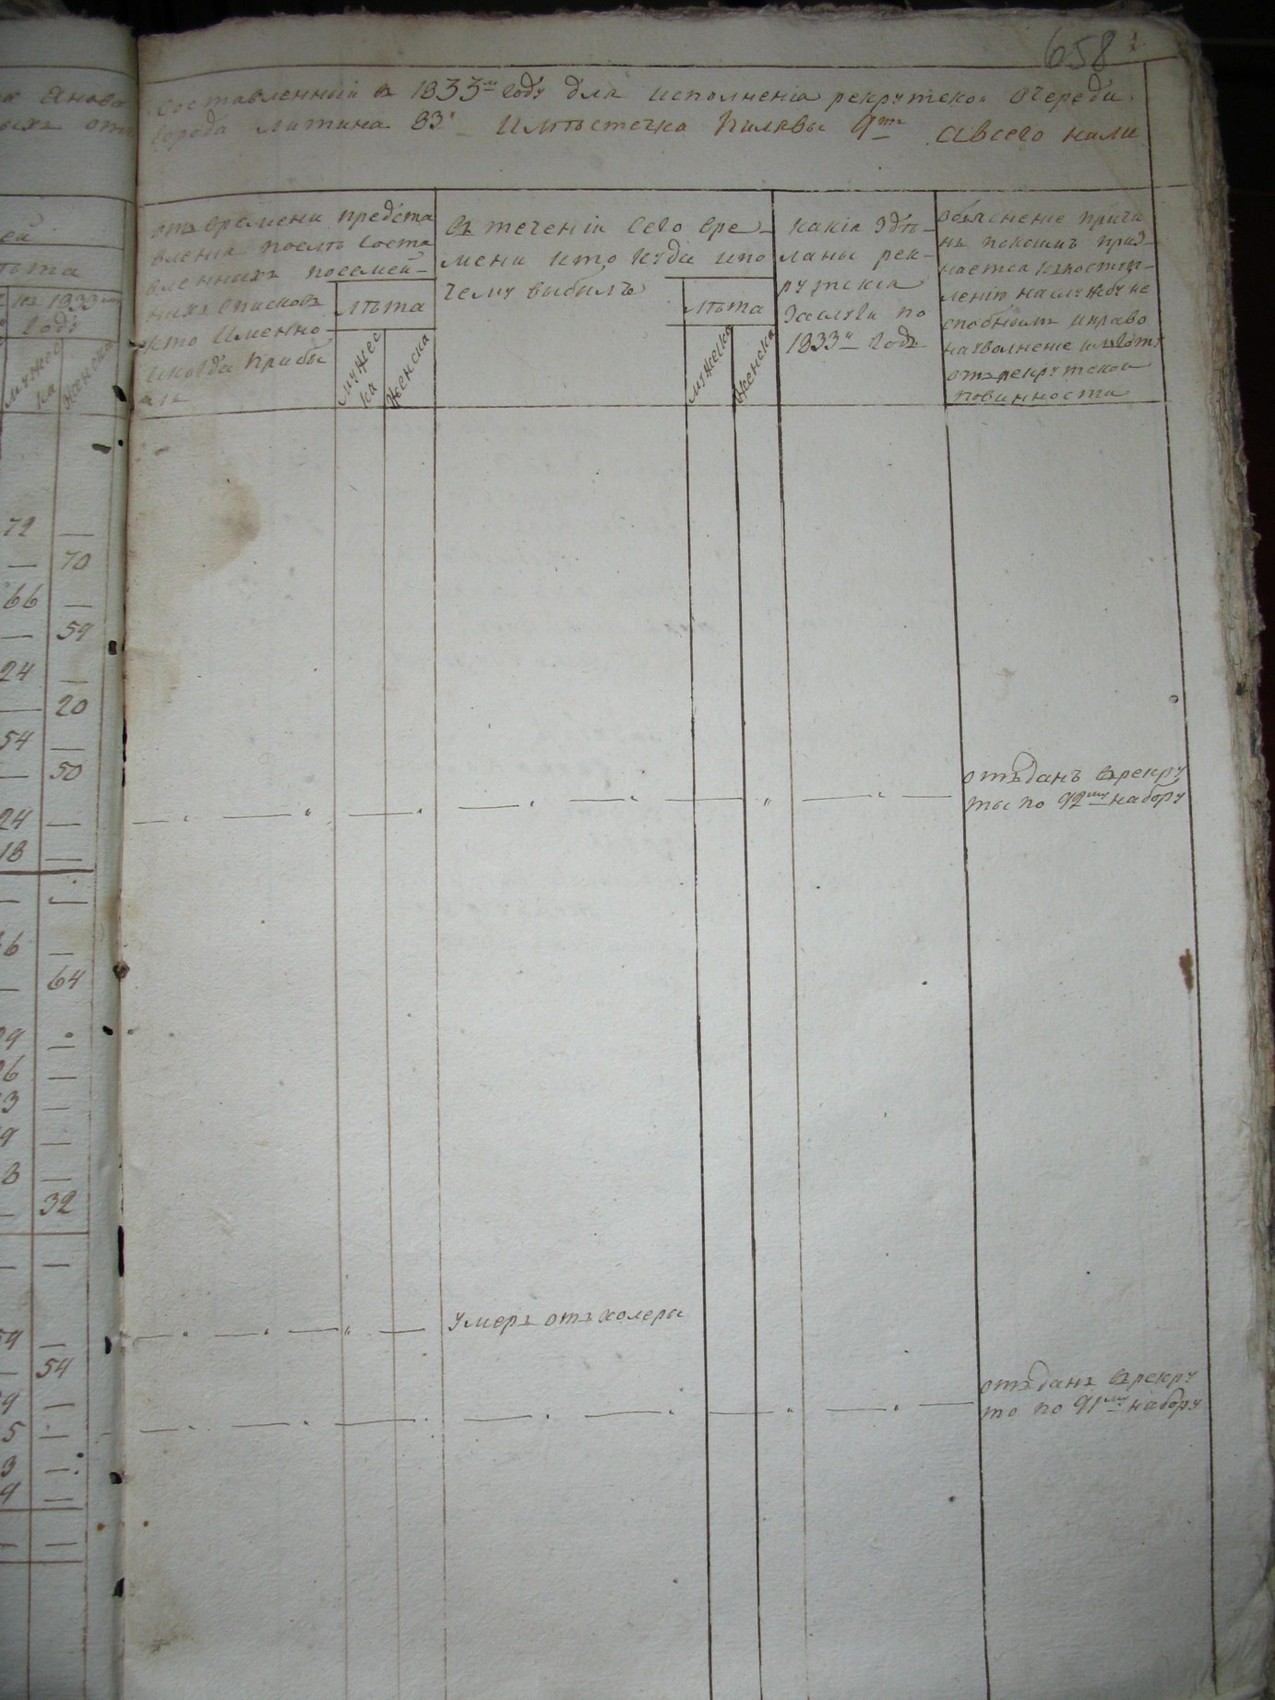 658
Составленный в 1833м Году для исполнения рекрутской Очереди
города Литина 83 Иместечка Пилявы 9ть Авсего нали
отъ времени предста
вления после соста
вленныхъ посемей-
ныхъ списковъ
кто Имянно
Икогда прибы
лъ
лѣта
мужеска
женска
Въ теченіи Сего Вре-
мени кто куда ипо
чему выбылъ
лѣта
мужеска
женска
какія здѣ-
ланы рек-
рутскія
Заслуги по
1833й Годъ
Объяснение причи
нъ покоимъ приз-
нается кпоступ-
лению наслужбу не
способнымъ иправо
наувольнение имѣетъ
отърекрутской
повинности
отъданъ Врекру
ты по 92му набору
Умеръ отъ холеры
отъданъ Врекру
ты по 91му набору
Янова
лѣта
къ 1833му
Году
мужеска
женска
72 —
— 70
66 —
— 59
24 —
— 20
54 —
— 50
24 —
18 —
— 64
— 32
— 54